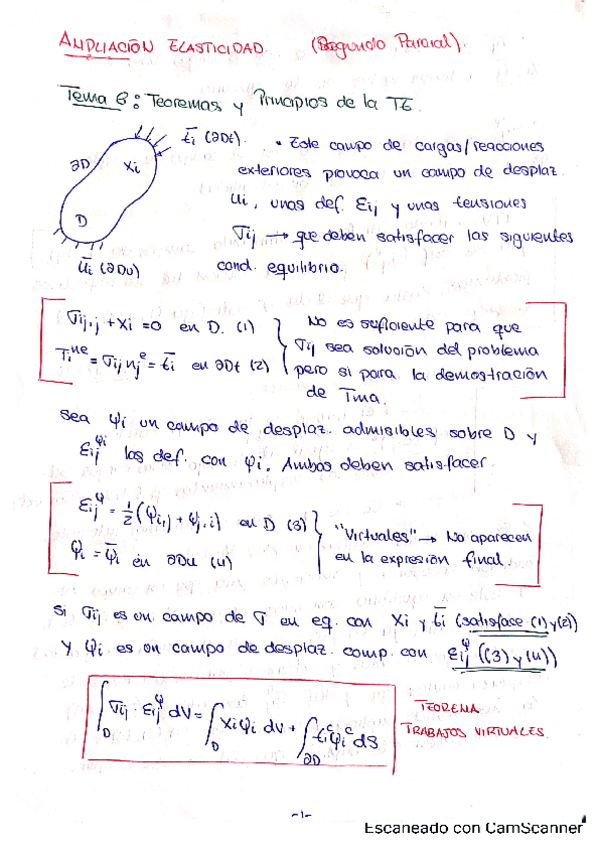 AMPLIACIÓN ELASTICIDAD. (Segundo Parcial).
Tema 6: Teoremas y Principios de la TE.
t̄i (∂Dt).
∂D
Xi
D
ūi (∂Du)
• Este campo de cargas/reacciones
exteriores provoca un campo de desplaz.
ui, unas def. Eij y unas tensiones
σij → que deben satisfacer las siguientes
cond. equilibrio.
σij,j + Xi = 0 en D. (1)
Ti^ne = σij nj^e = t̄i en ∂Dt (2)
No es suficiente para que
σij sea solución del problema
pero si para la demostración
de Tma.
Sea φi un campo de desplaz. admisibles sobre D y
Eij^φi las def. con φi. Ambos deben satisfacer.
Eij^φ = 1/2 (φi,j + φj,i) en D (3)
φi = φ̄i en ∂Du (4)
"Virtuales" → No aparecen
en la expresión final.
Si σij es un campo de σ en eq. con Xi y t̄i (satisface (1) y (2))
y φi es un campo de desplaz. comp. con Eij^φ ((3) y (4))
∫D σij · Eij^φ dV = ∫D Xi φi dV + ∫∂D ti^c φi^c dS
TEOREMA
TRABAJOS VIRTUALES.
-1-
Escaneado con CamScanner